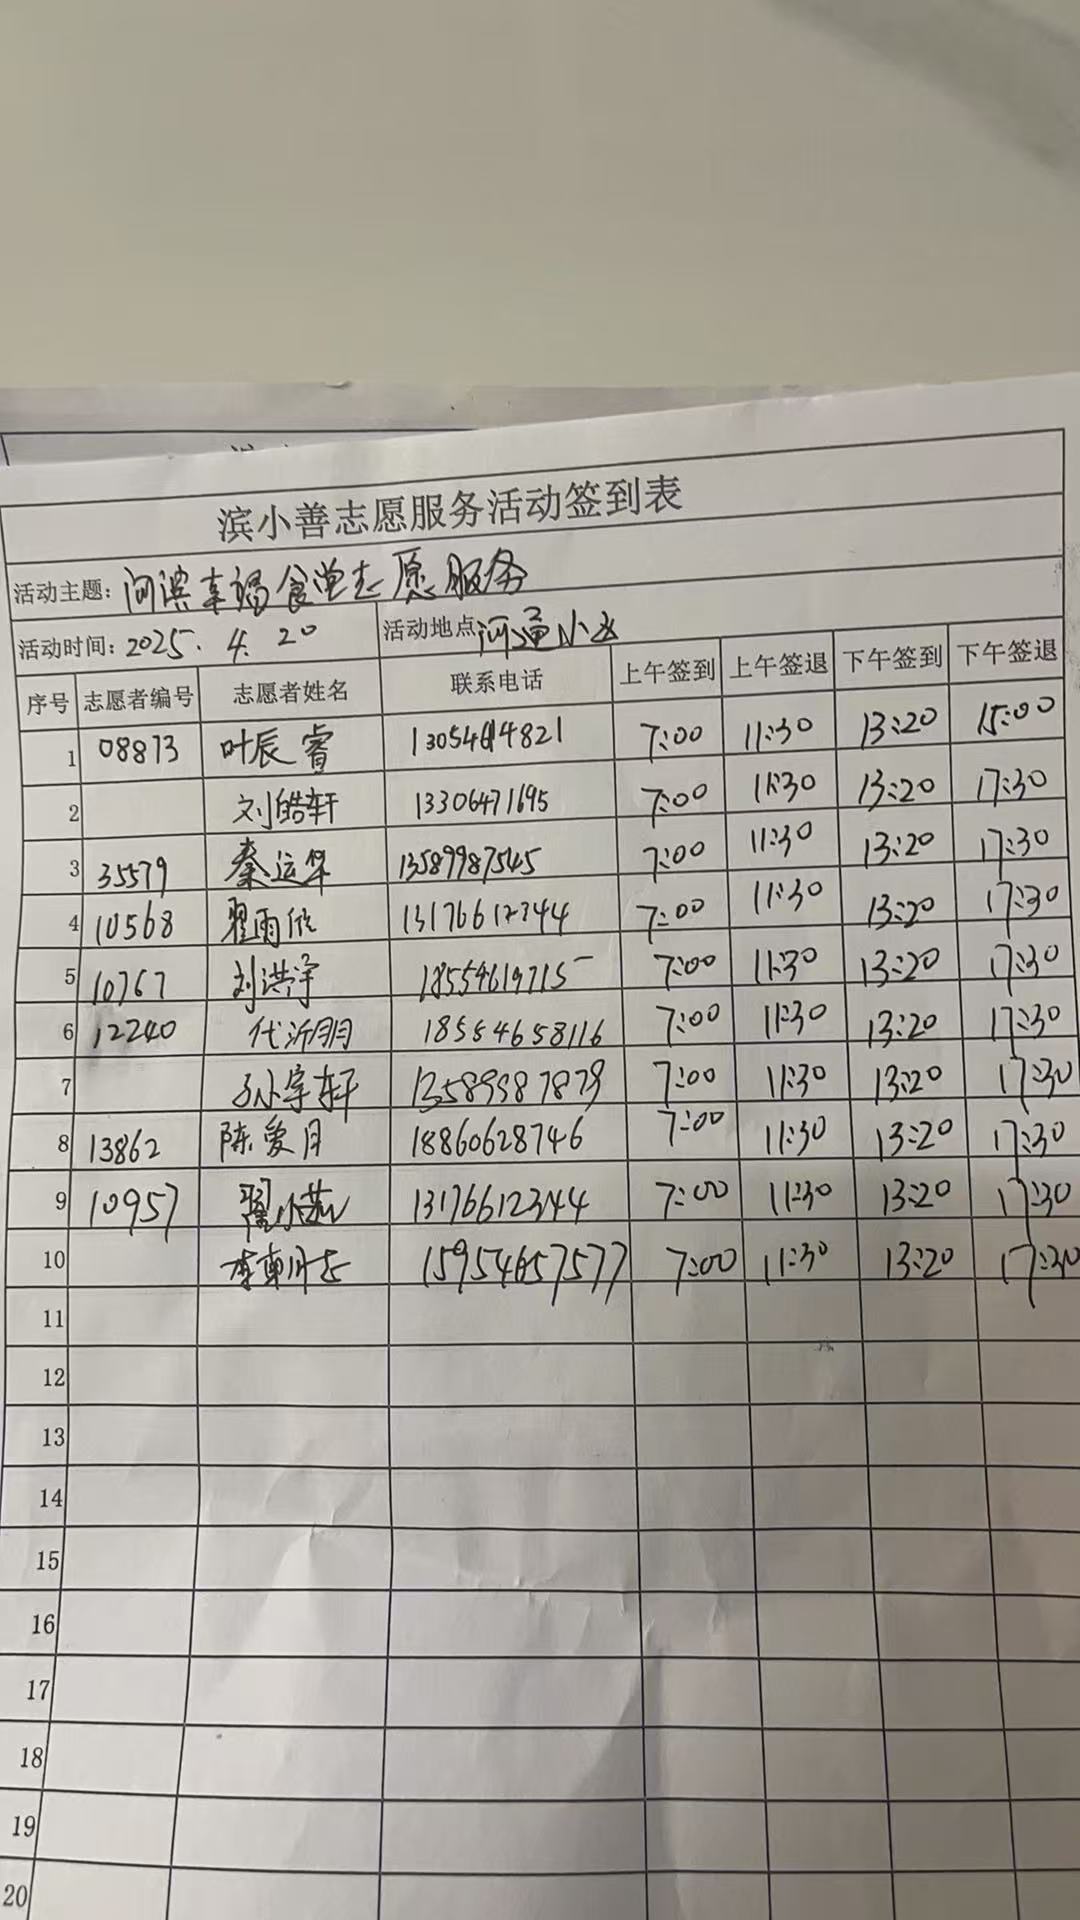 滨小善志愿服务活动签到表
活动主题: 幸福食堂志愿服务
活动时间: 2025.4.20 活动地点
序号 志愿者编号 志愿者姓名 联系电话 上午签到 上午签退 下午签到 下午签退
1 08873 叶辰睿 13054614821 7:00 11:30 13:20 15:00
2 刘皓轩 13306471695 7:00 11:30 13:20 17:30
3 35579 秦运华 13589987545 7:00 11:30 13:20 17:30
4 10568 翟雨欣 13176612344 7:00 11:30 13:20 17:30
5 10767 刘洪宇 18554619715 7:00 11:30 13:20 17:30
6 12240 代沂玥 18554658116 7:00 11:30 13:20 17:30
7 孙宇轩 13589987879 7:00 11:30 13:20 17:30
8 13862 陈爱月 18860628746 7:00 11:30 13:20 17:30
9 10957 13176612344 7:00 11:30 13:20 17:30
10 15954657577 7:00 11:30 13:20 17:30
11
12
13
14
15
16
17
18
19
20